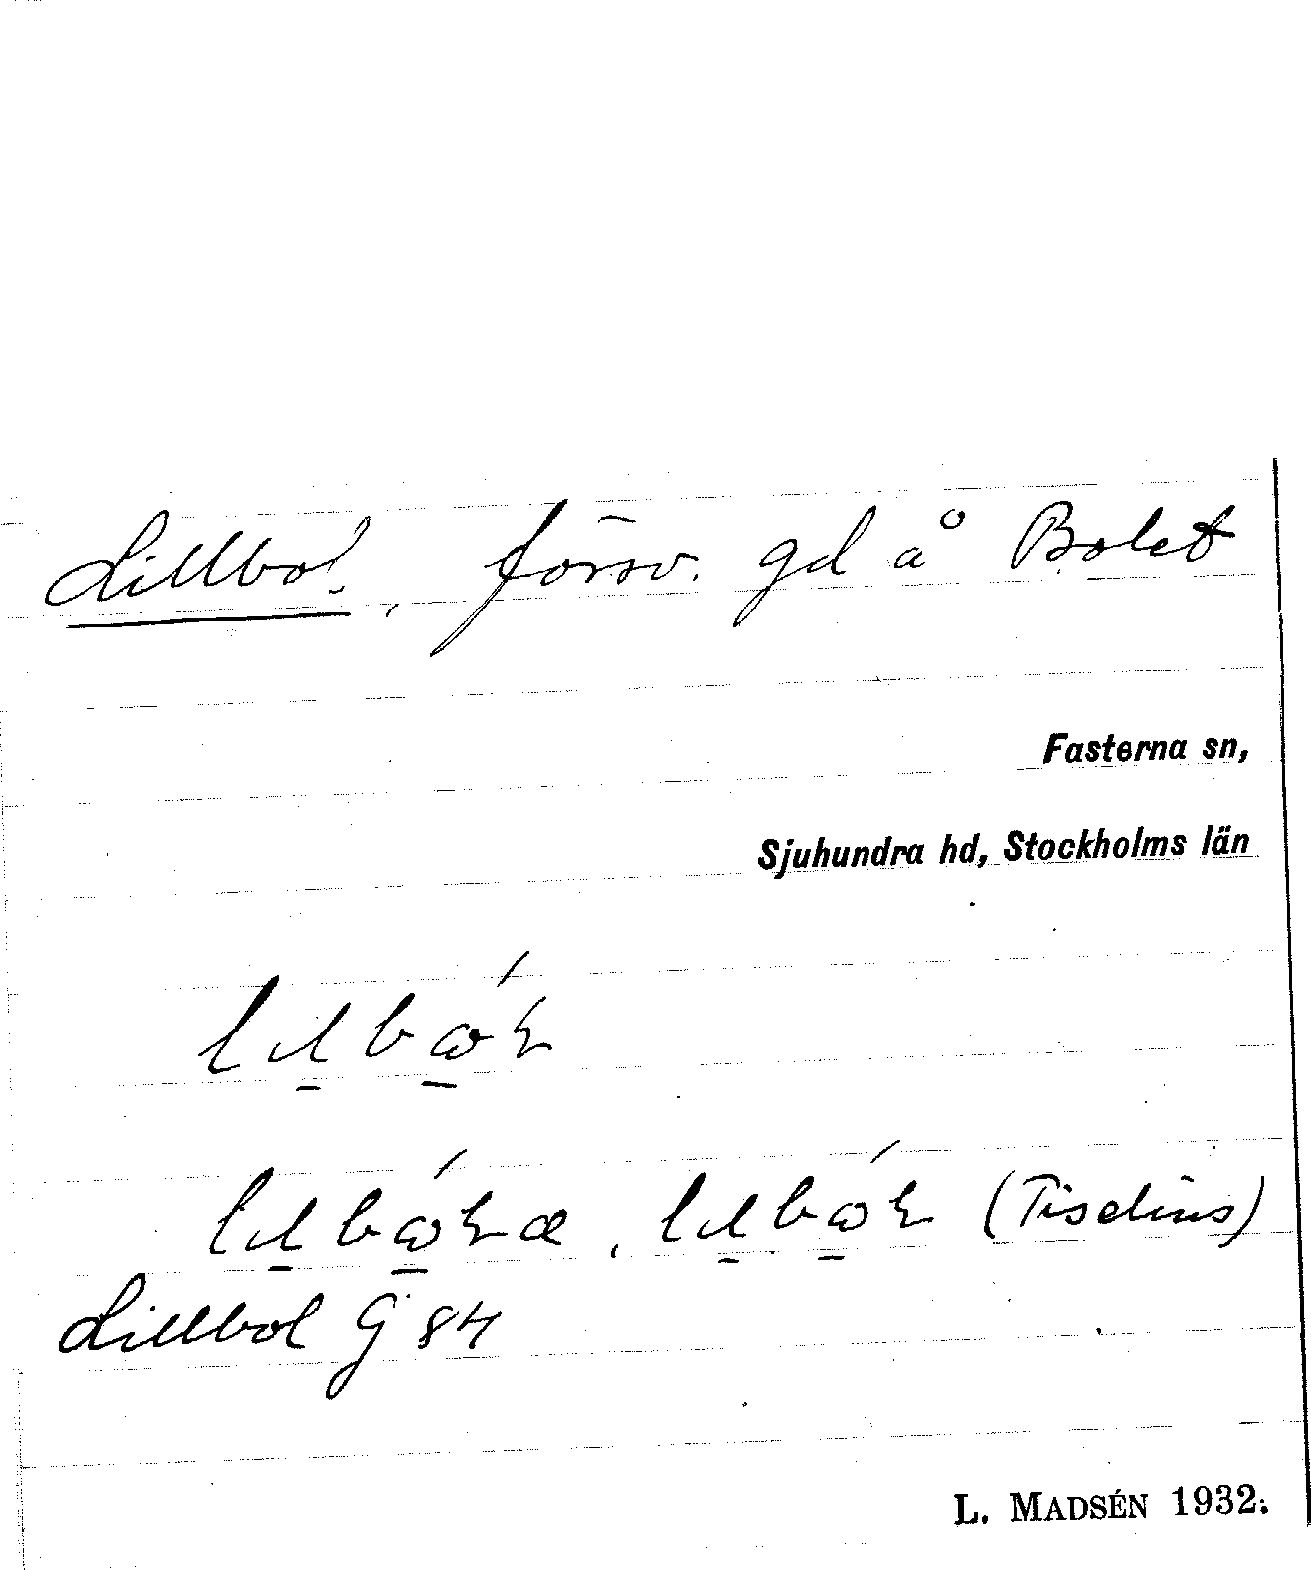 Lillbol, försv. gd å Bolet
Fasterna sn,
Sjuhundra hd, Stockholms län
(Tiselius)
Lillbol G 84
L. MADSÉN 1932.